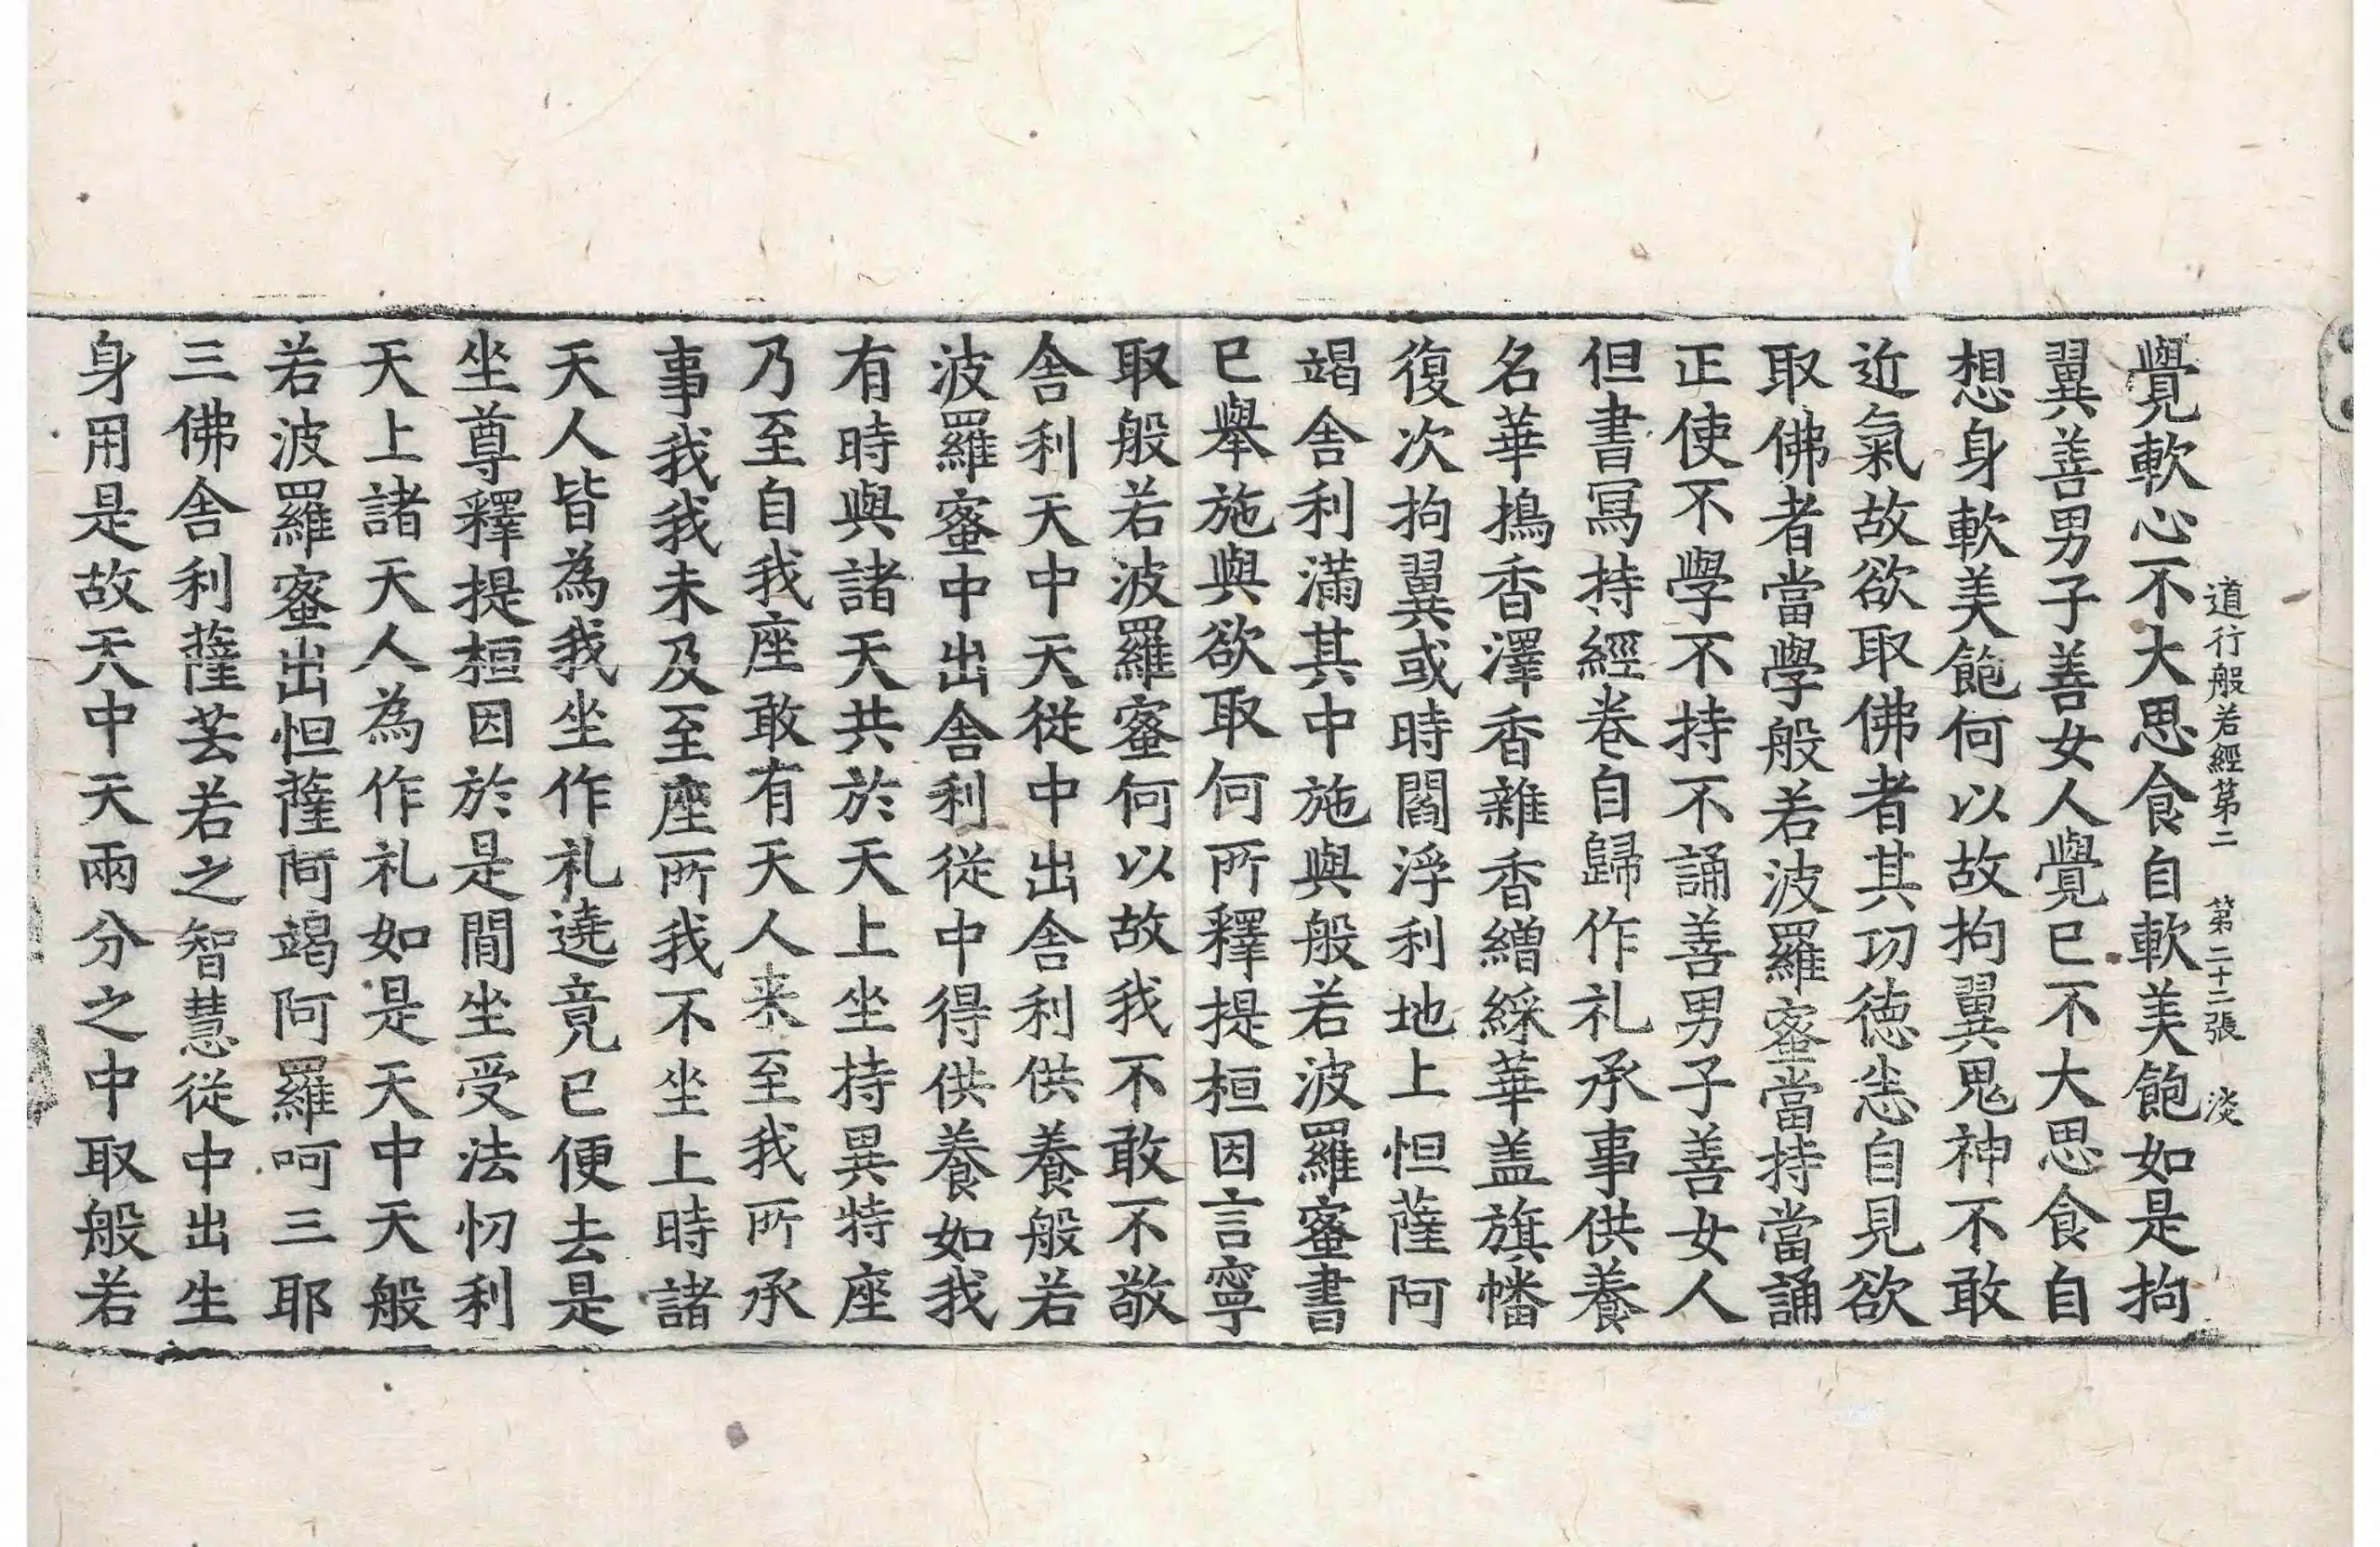 道行般若經第二 第二十二張 淡
覺軟心不大思食自軟美飽如是拘
翼善男子善女人覺已不大思食自
想身軟美飽何以故拘翼鬼神不敢
近氣故欲取佛者其功德恙自見欲
取佛者當學般若波羅蜜當持當誦
正使不學不持不誦善男子善女人
但書寫持經卷自歸作礼承事供養
名華擣香澤香雜香繒綵華盖旗幡
復次拘翼或時閻浮利地上怛薩阿
竭舍利滿其中施與般若波羅蜜書
已舉施與欲取何所釋提桓因言寧
取般若波羅蜜何以故我不敢不敬
舍利天中天從中出舍利供養般若
波羅蜜中出舍利從中得供養如我
有時與諸天共於天上坐持異特座
乃至自我座敢有天人来至我所承
事我我未及至座所我不坐上時諸
天人皆為我坐作礼遶竟已便去是
坐尊釋提桓因於是閒坐受法忉利
天上諸天人為作礼如是天中天般
若波羅蜜出怛薩阿竭阿羅呵三耶
三佛舍利薩芸若之智慧從中出生
身用是故天中天兩分之中取般若